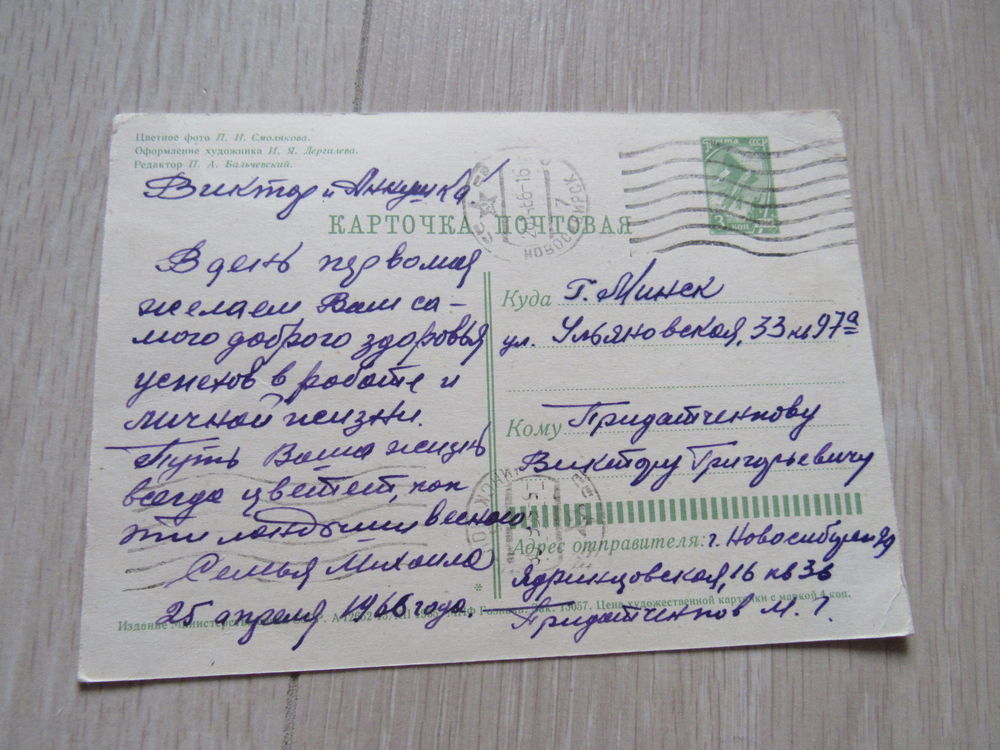 Цветное фото П. И. Смолякова.
Оформление художника И. Я. Дергилева.
Редактор П. А. Бальчевский.
Виктор и Аннушка!
КАРТОЧКА ПОЧТОВАЯ
Почта СССР
3 коп
НОВОСИБИРСК 7
В день первомая
желаем Вам са-
мого доброго здоровья
успехов в работе и
личной жизни.
Пусть Ваша жизнь
всегда цветет, как
эти ландыши весною
Семья Михаила
25 апреля 1966 года.
Куда г. Минск
ул. Ульяновская, 33 кв 97а
Кому Придатченкову
Виктору Григорьевичу
Адрес отправителя: г. Новосибирск 99
Ядринцовская, 16 кв 36
Придатченков М. Г.
Издание Министерства Зак. 13657. Цена художественной карточки с маркой 4 коп.